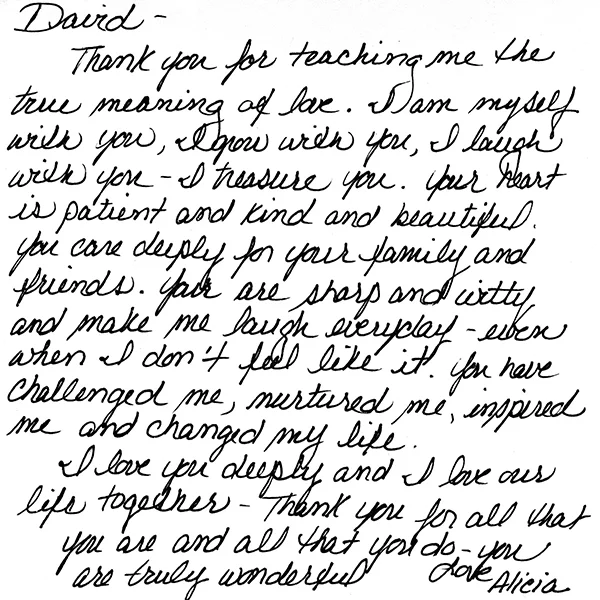 David -
Thank you for teaching me the
true meaning of love. I am myself
with you, I grow with you, I laugh
with you - I treasure you. Your heart
is patient and kind and beautiful.
You care deeply for your family and
friends. You are sharp and witty
and make me laugh everyday - even
when I don't feel like it. You have
challenged me, nurtured me, inspired
me and changed my life.
I love you deeply and I love our
life together - Thank you for all that
you are and all that you do - you
are truly wonderful
Love
Alicia